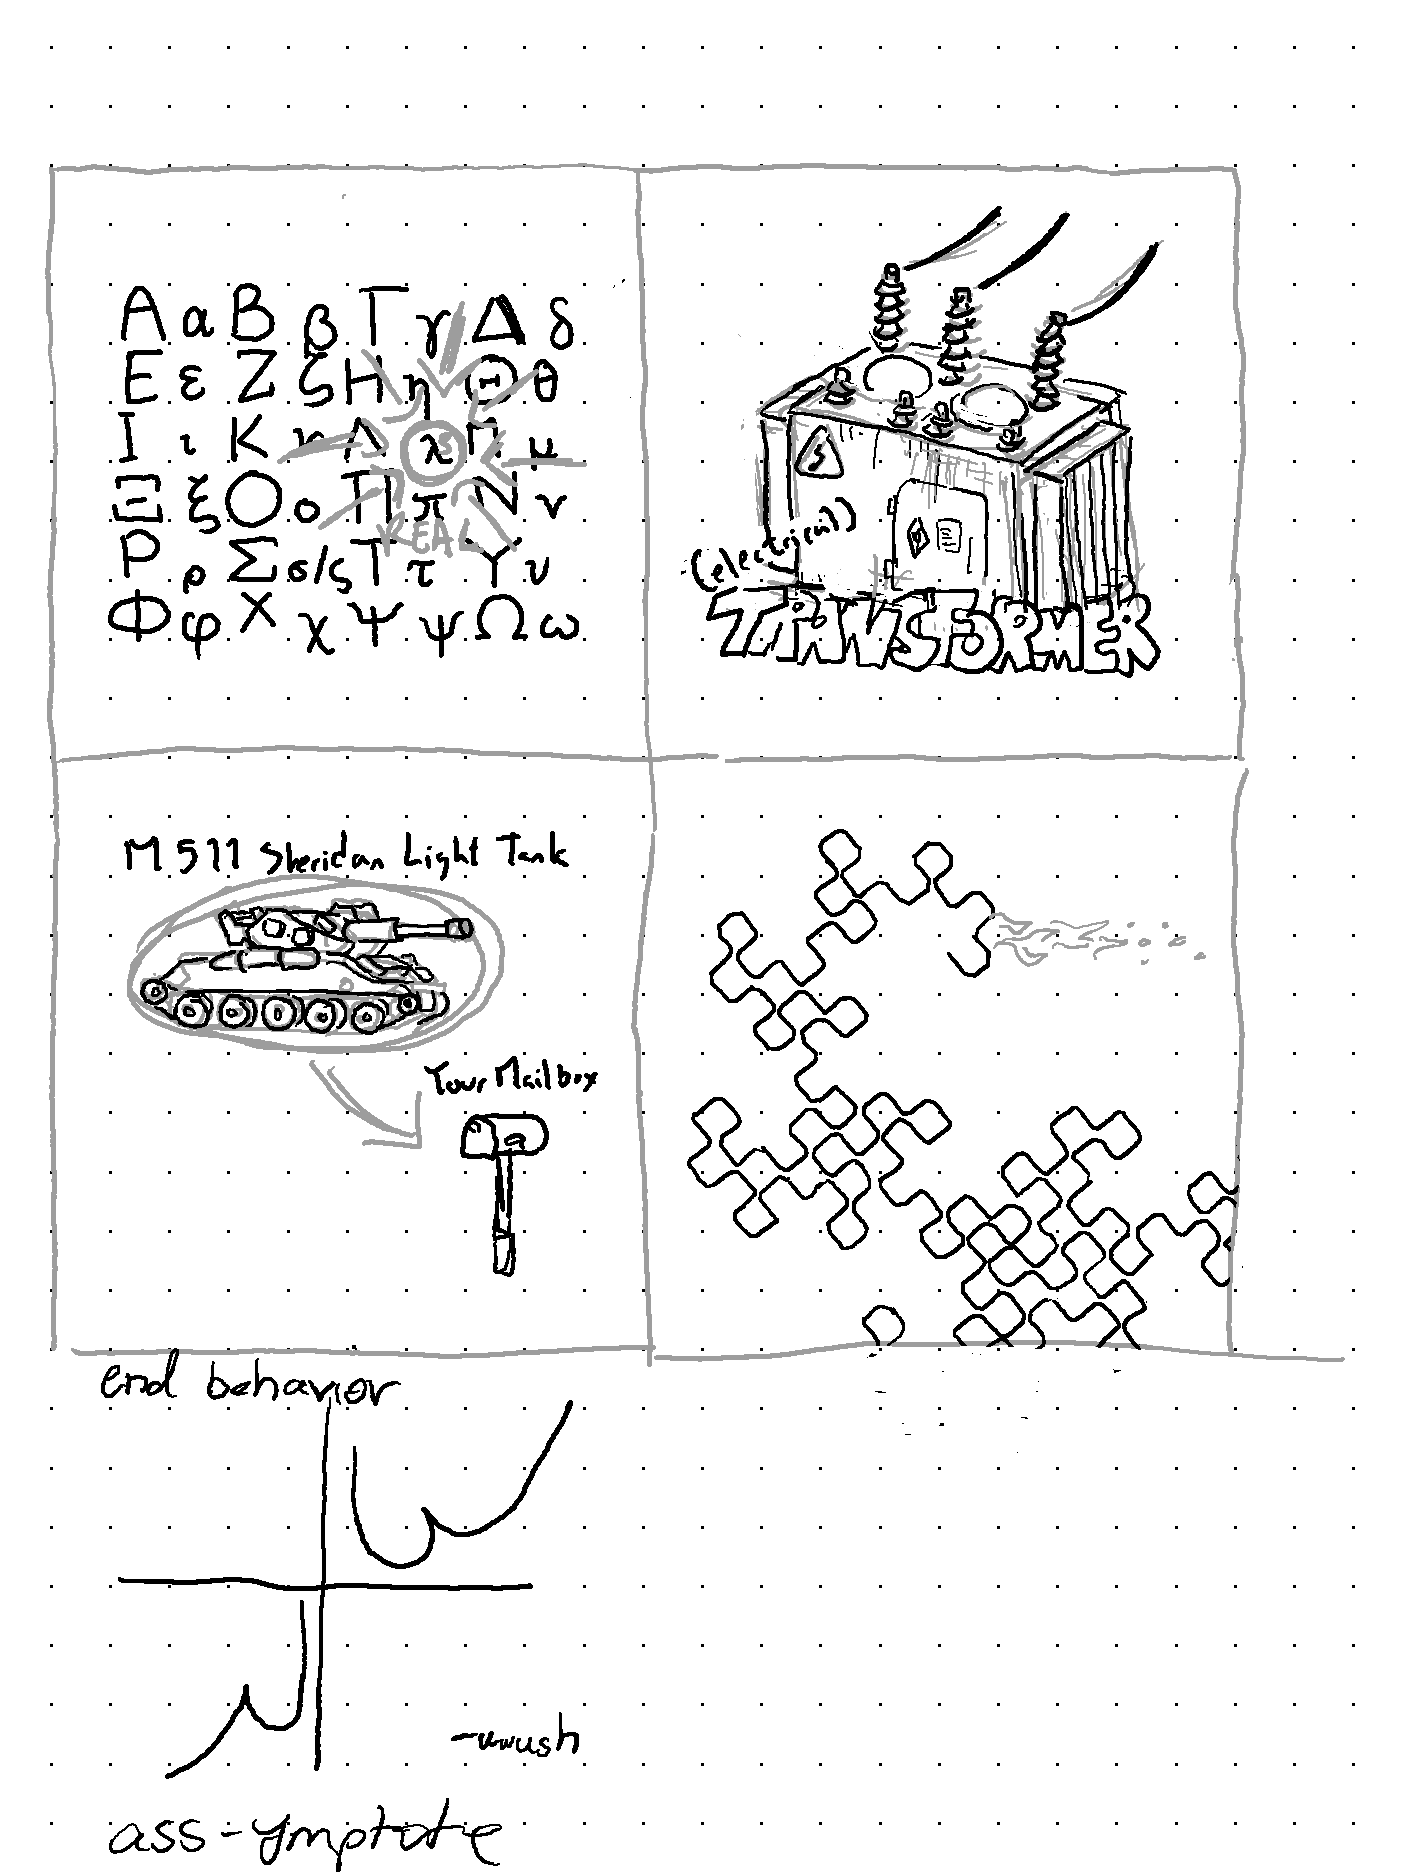 Α α Β β Γ γ Δ δ
Ε ε Ζ ζ Η η Θ θ
Ι ι Κ Λ λ μ
Ξ ξ Ο ο Π π Ν ν
REAL
Ρ ρ Σ σ/ς Τ τ Υ υ
Φ φ Χ χ Ψ ψ Ω ω
(electrical)
TRANSFORMER
M511 Sheridan Light Tank
Your Mailbox
end behavior
ass-ymptote